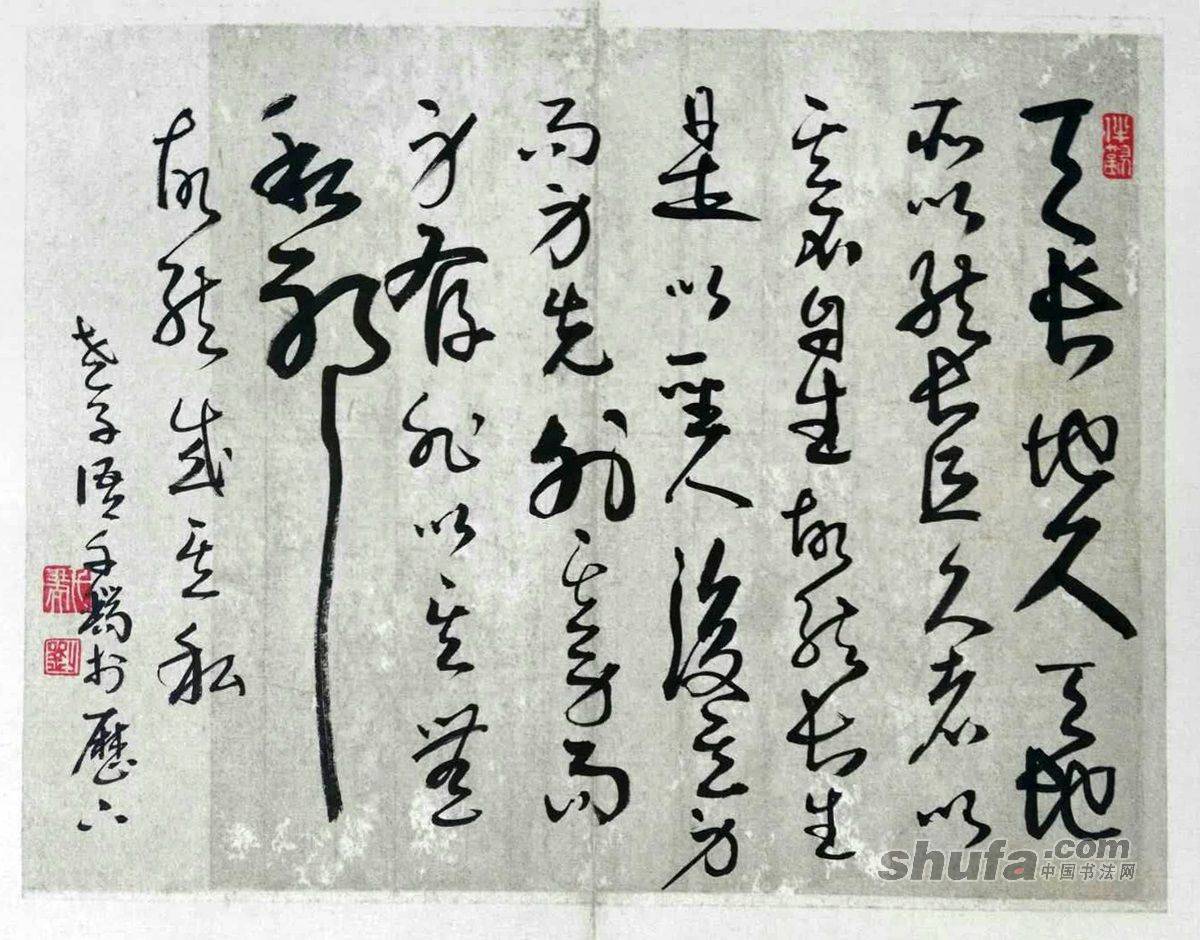 天長地久天地
所以能長且久者以
其不自生故能長生
是以聖人後其身
而身先外其身而
身存非以其無
私邪
故能成其私
老子語於歷下
劉
shufa.com
中国书法网